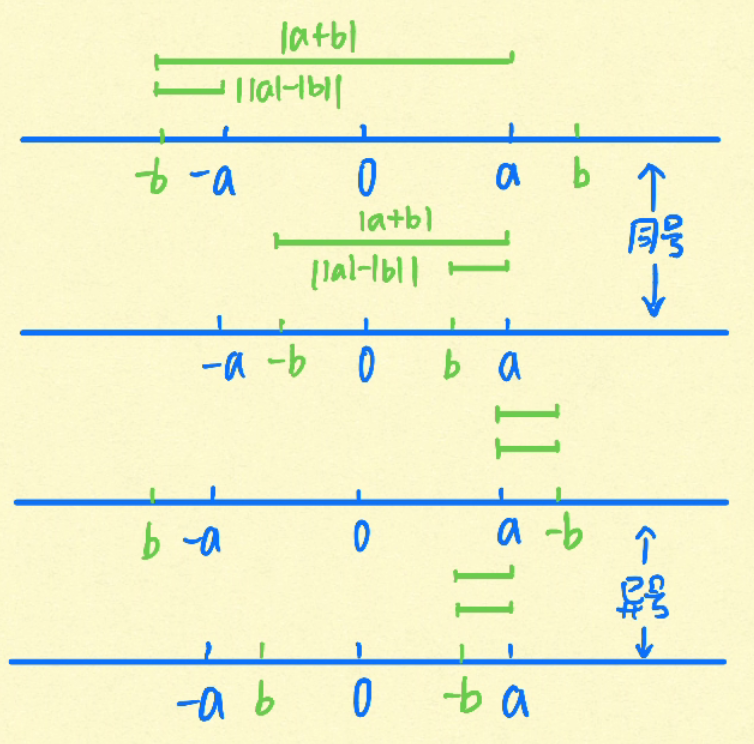 |a+b|
||a|-|b||
-b -a 0 a b
同号
|a+b|
||a|-|b||
-a -b 0 b a
b -a 0 a -b
异号
-a b 0 -b a